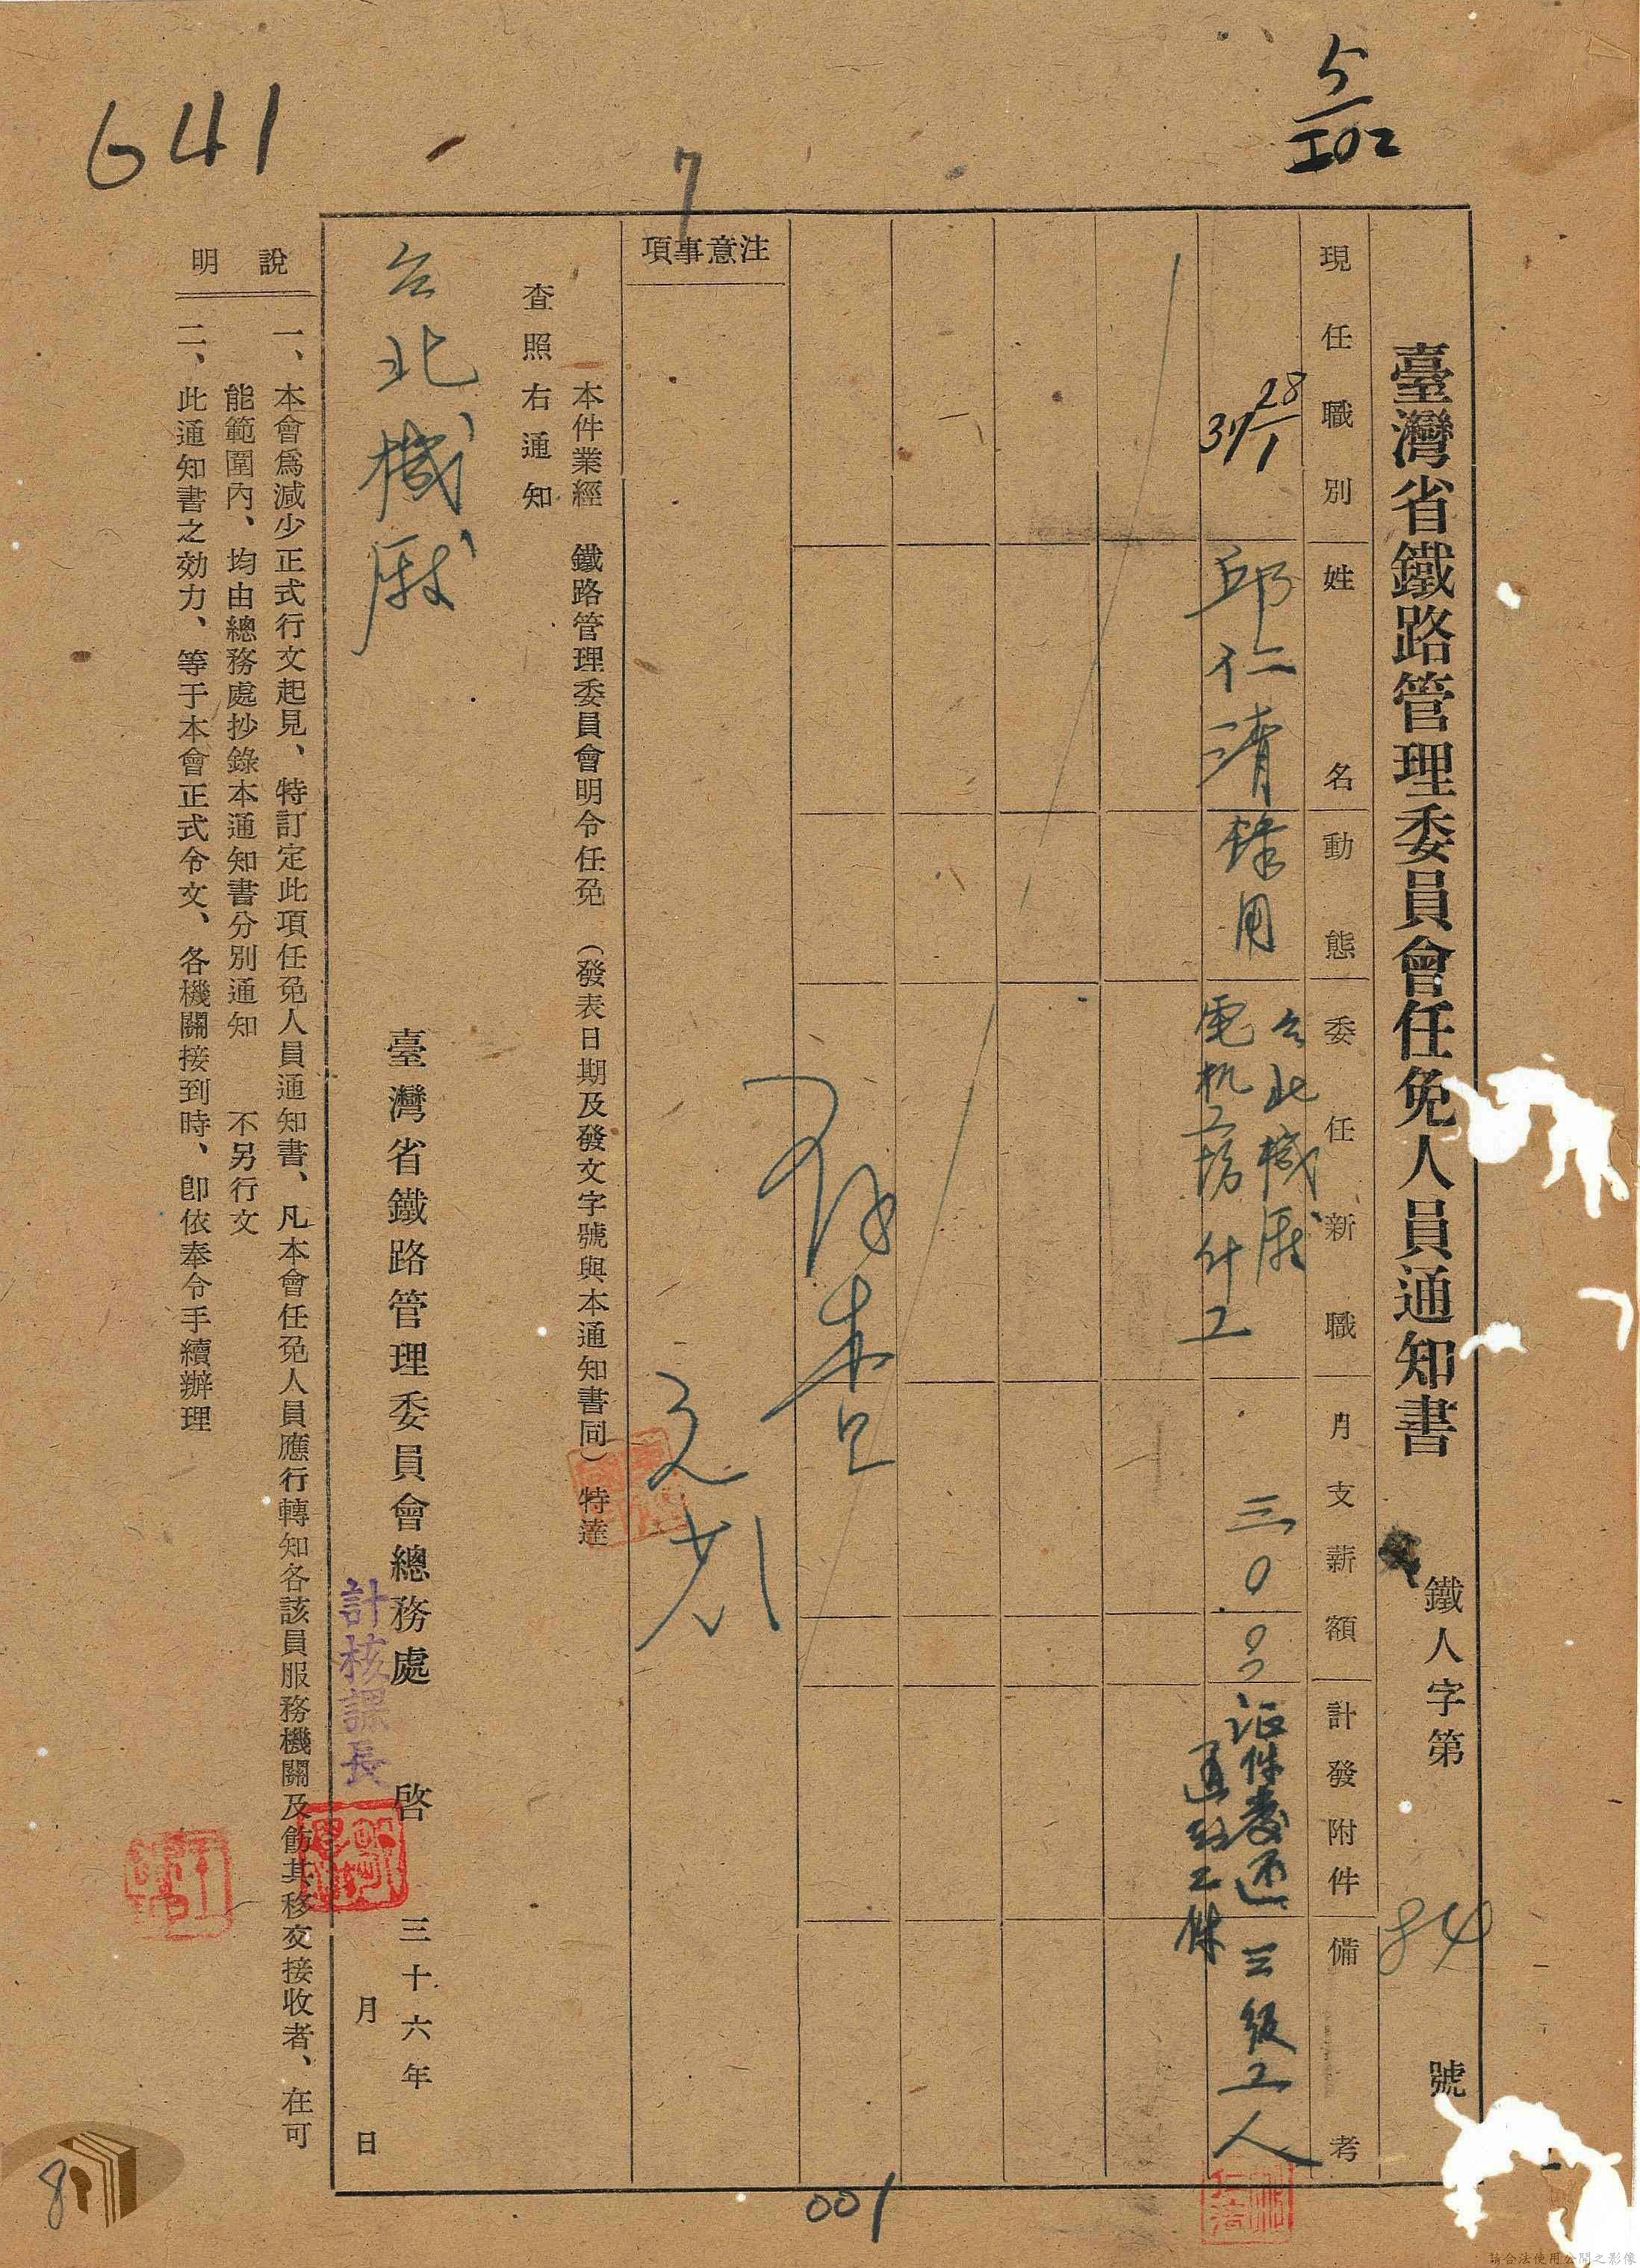 5/102
641
7
臺灣省鐵路管理委員會任免人員通知書
鐵人字第 84 號
現任職別
姓名
動態
委任新職
月支薪額
計發附件
備考
28/1
37
邱仁清
錄用
台北機厰
電机工場 什工
三00
証件發還
三級工人
注意事項
本件業經 鐵路管理委員會明令任免 (發表日期及發文字號與本通知書同) 特達
查照右通知
台北機厰
臺灣省鐵路管理委員會總務處 啓 三十六年
月 日
計核課長
說明
一、本會爲減少正式行文起見、特訂定此項任免人員通知書、凡本會任免人員應行轉知各該員服務機關及飭其移交接收者、在可
能範圍內、均由總務處抄錄本通知書分別通知 不另行文
二、此通知書之効力、等于本會正式令文、各機關接到時、卽依奉令手續辦理
001
8
請合法使用公開之影像